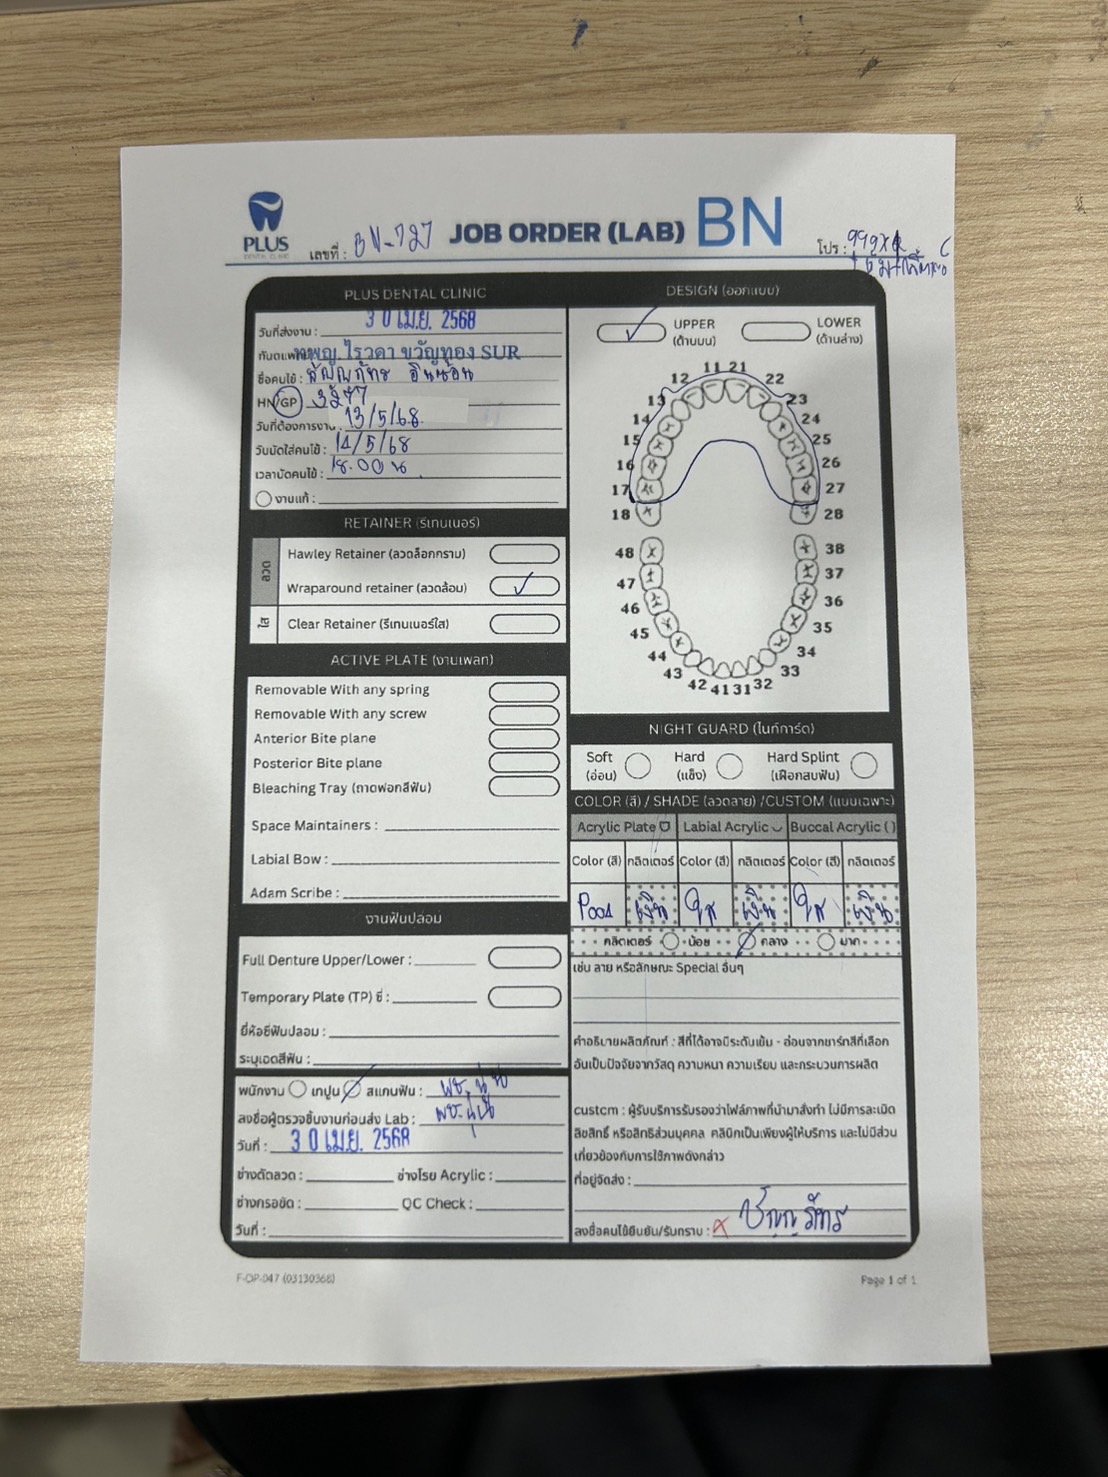 PLUS
DENTAL CLINIC
เลขที่ : BN-727
JOB ORDER (LAB) BN
โปร :
PLUS DENTAL CLINIC
วันที่ส่งงาน : 30 เม.ย. 2568
ทันตแพทย์ ทพญ. ไรวดา ขวัญทอง SUR
ชื่อคนไข้ :
HN/GP 3277
วันที่ต้องการงาน : 13/5/68
วันนัดใส่คนไข้ : 14/5/68
เวลานัดคนไข้ : 18.00 น
งานแก้ :
RETAINER (รีเทนเนอร์)
ลวด
Hawley Retainer (ลวดล็อกกราม)
Wraparound retainer (ลวดล้อม)
ใส
Clear Retainer (รีเทนเนอร์ใส)
ACTIVE PLATE (งานเพลท)
Removable With any spring
Removable With any screw
Anterior Bite plane
Posterior Bite plane
Bleaching Tray (ถาดฟอกสีฟัน)
Space Maintainers :
Labial Bow :
Adam Scribe :
งานฟันปลอม
Full Denture Upper/Lower :
Temporary Plate (TP) ซี่ :
ยี่ห้อซี่ฟันปลอม :
ระบุเฉดสีฟัน :
พนักงาน เทปูน สแกนฟัน :
ลงชื่อผู้ตรวจชิ้นงานก่อนส่ง Lab :
วันที่ : 30 เม.ย. 2568
ช่างดัดลวด : ช่างโรย Acrylic :
ช่างกรอขัด : QC Check :
วันที่ :
DESIGN (ออกแบบ)
UPPER (ด้านบน)
LOWER (ด้านล่าง)
11 21
12 22
13 23
14 24
15 25
16 26
17 27
18 28
48 38
47 37
46 36
45 35
44 34
43 33
42 41 31 32
NIGHT GUARD (ไนท์การ์ด)
Soft (อ่อน)
Hard (แข็ง)
Hard Splint (เฝือกสบฟัน)
COLOR (สี) / SHADE (ลวดลาย) /CUSTOM (แบบเฉพาะ)
Acrylic Plate Labial Acrylic Buccal Acrylic ( )
Color (สี) กลิตเตอร์ Color (สี) กลิตเตอร์ Color (สี) กลิตเตอร์
P001 เงิน ใส เงิน ใส เงิน
กลิตเตอร์ น้อย กลาง มาก
เช่น ลาย หรือลักษณะ Special อื่นๆ
คำอธิบายผลิตภัณฑ์ : สีที่ได้อาจมีระดับเข้ม - อ่อนจากชาร์ทสีที่เลือก
อันเป็นปัจจัยจากวัสดุ ความหนา ความเรียบ และกระบวนการผลิต
custom : ผู้รับบริการรับรองว่าไฟล์ภาพที่นำมาสั่งทำ ไม่มีการละเมิด
ลิขสิทธิ์ หรือสิทธิส่วนบุคคล คลินิกเป็นเพียงผู้ให้บริการ และไม่มีส่วน
เกี่ยวข้องกับการใช้ภาพดังกล่าว
ที่อยู่จัดส่ง :
ลงชื่อคนไข้ยืนยัน/รับทราบ : x
F-OP-047 (03130368)
Page 1 of 1